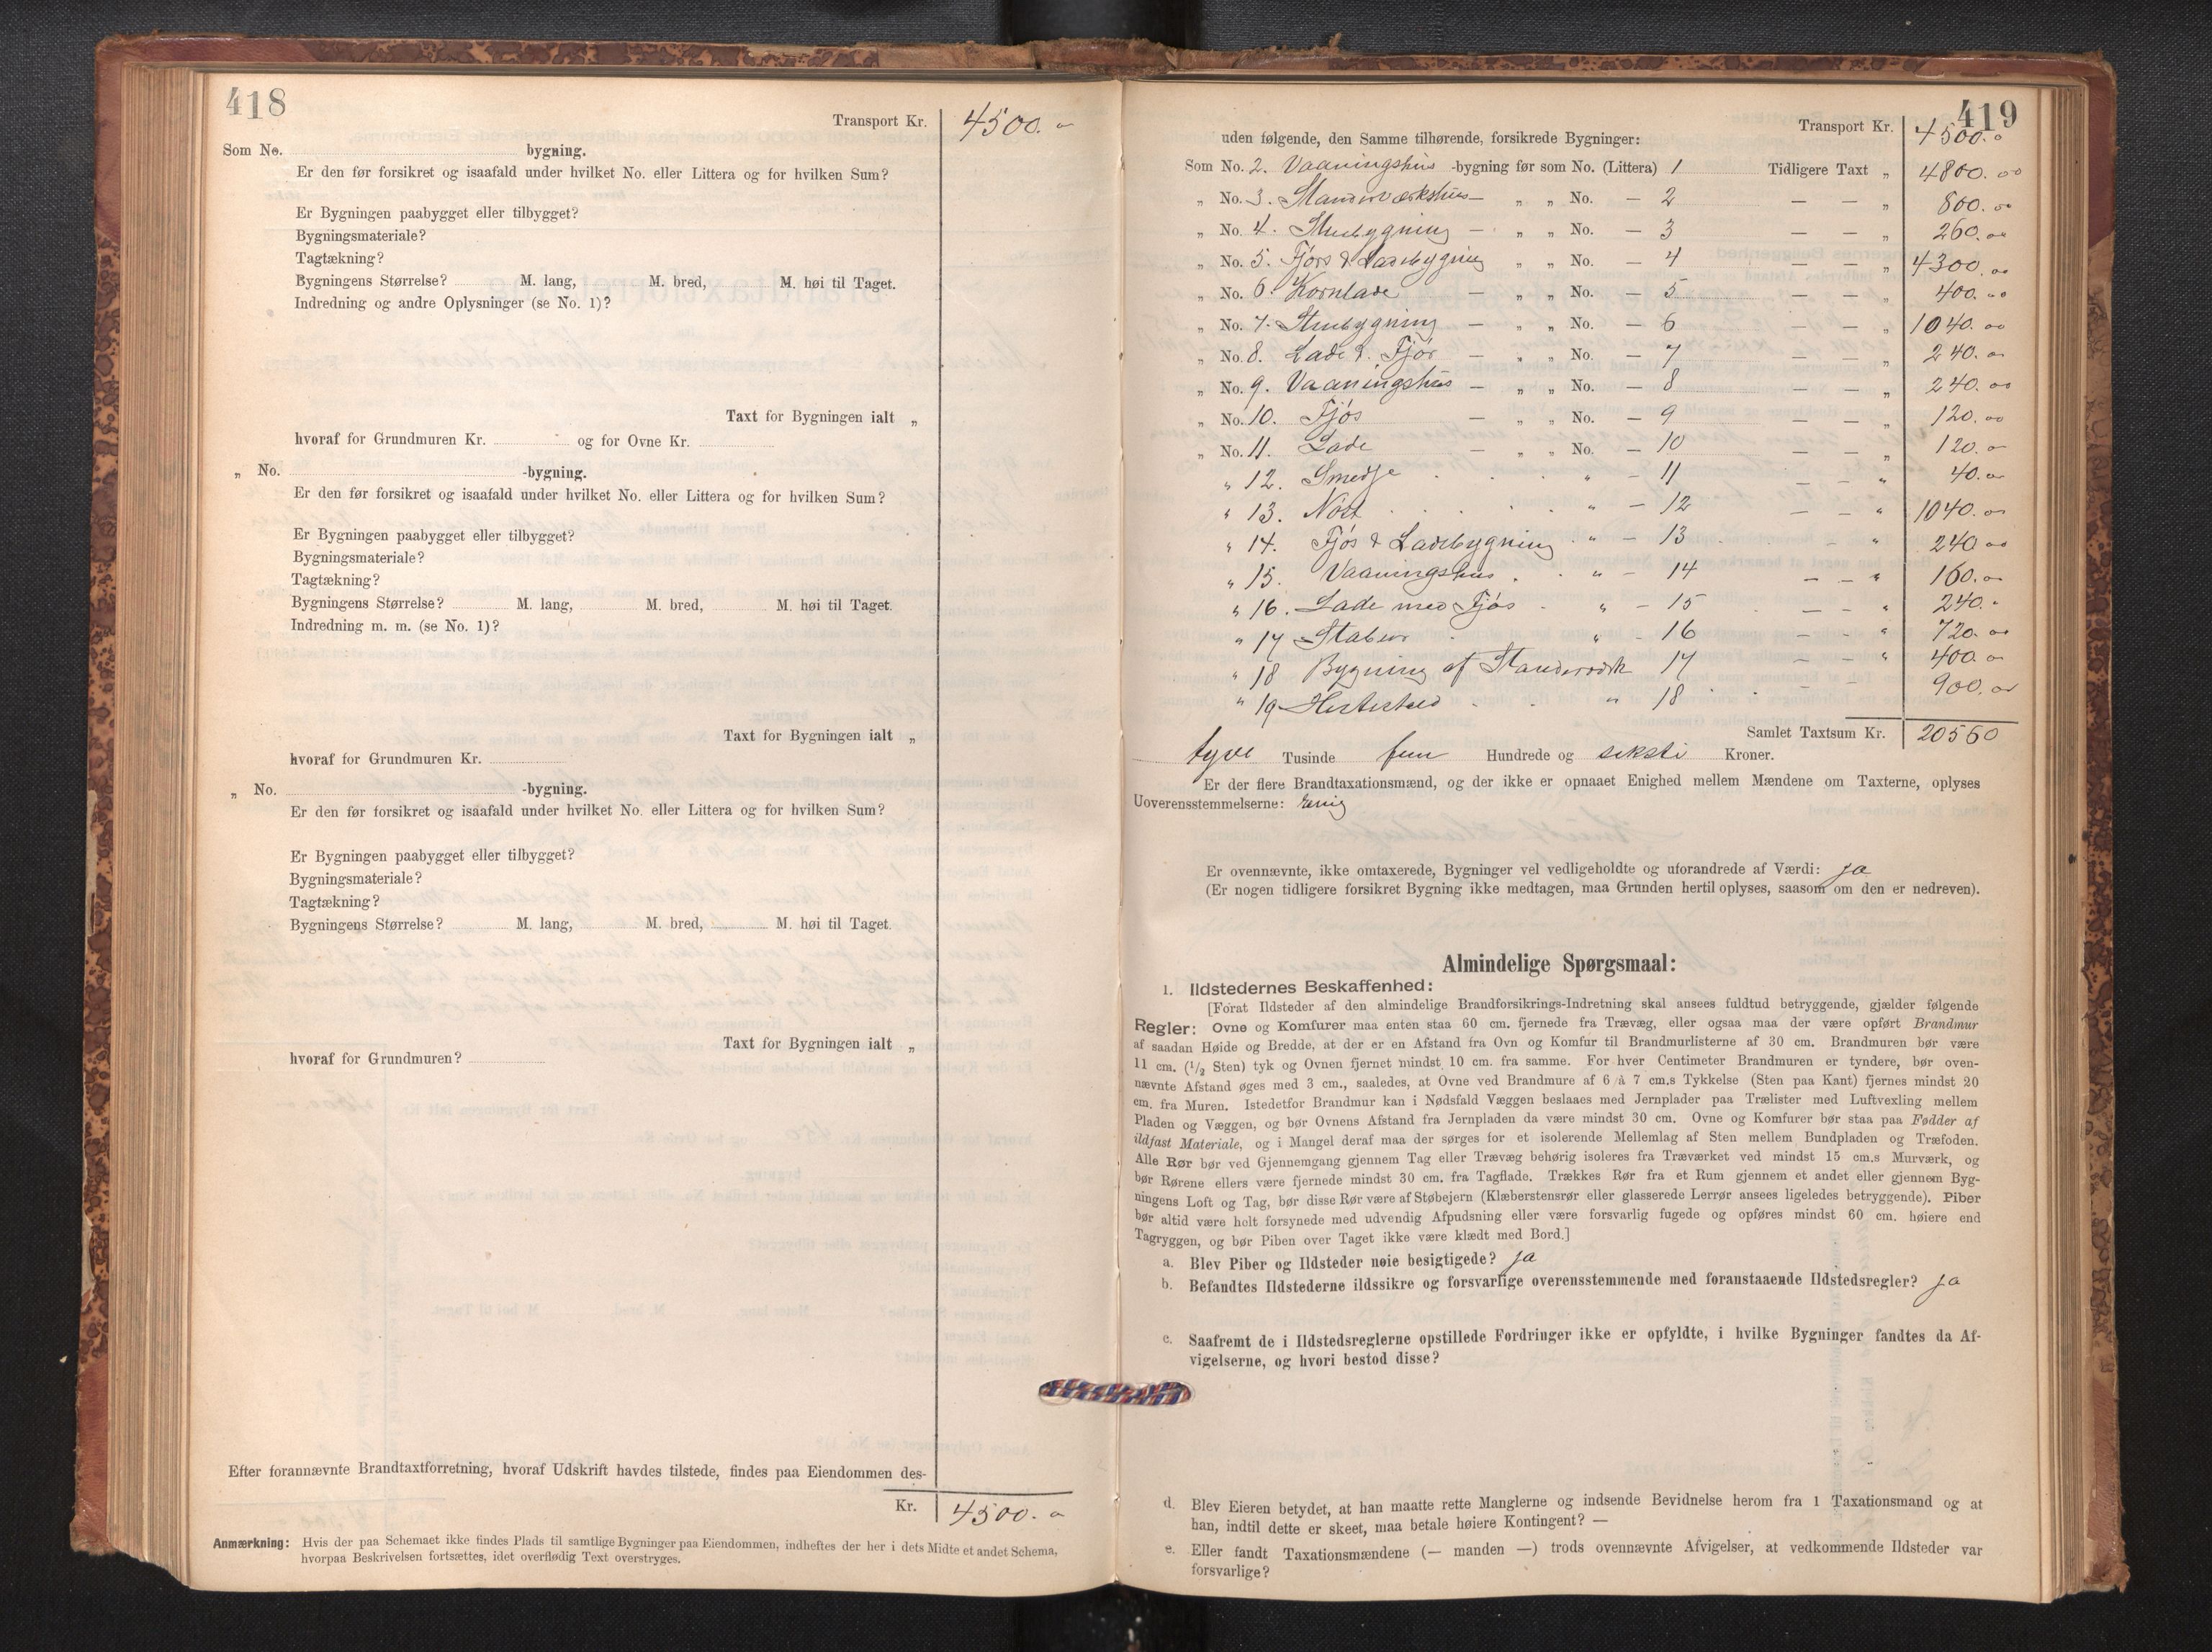 418
Transport Kr. 4500. "
Som No. bygning.
Er den før forsikret og isaafald under hvilket No. eller Littera og for hvilken Sum?
Er Bygningen paabygget eller tilbygget?
Bygningsmateriale?
Tagtækning?
Bygningens Størrelse? M. lang, M. bred, M. høi til Taget.
Indredning og andre Oplysninger (se No. 1)?
Taxt for Bygningen ialt „
hvoraf for Grundmuren Kr. og for Ovne Kr.
„ No. -bygning.
Er den før forsikret og isaafald under hvilket No. eller Littera og for hvilken Sum?
Er Bygningen paabygget eller tilbygget?
Bygningsmateriale?
Tagtækning?
Bygningens Størrelse? M. lang, M. bred, M. høi til Taget.
Indredning m. m. (se No. 1)?
Taxt for Bygningen ialt „
hvoraf for Grundmuren Kr.
„ No. -bygning.
Er den før forsikret og isaafald under hvilket No. eller Littera og for hvilken Sum?
Er Bygningen paabygget eller tilbygget?
Bygningsmateriale?
Tagtækning?
Bygningens Størrelse? M. lang, M. bred, M. høi til Taget.
Taxt for Bygningen ialt „
hvoraf for Grundmuren?
Efter forannævnte Brandtaxtforretning, hvoraf Udskrift havdes tilstede, findes paa Eiendommen des-
Kr. 4500. "
Anmærkning: Hvis der paa Schemaet ikke findes Plads til samtlige Bygninger paa Eiendommen, indheftes der her i dets Midte et andet Schema,
hvorpaa Beskrivelsen fortsættes, idet overflødig Text overstryges.
419
Transport Kr. 4500. "
uden følgende, den Samme tilhørende, forsikrede Bygninger:
Som No. 2. Vaaningshus -bygning før som No. (Littera) 1 Tidligere Taxt „ 4800. 00
„ No. 3. Standerværkshus — „ „ No. — 2 — — „ 800. 00
„ No. 4. Stuebygning — „ „ No. — 3 — — „ 260. 00
„ No. 5. Fjøs & Ladebygning „ „ No. — 4 — — „ 4300. 00
„ No. 6. Kornlade — „ „ No. — 5 — — „ 400. 00
„ No. 7. Stuebygning — „ „ No. — 6 — — „ 1040. 00
„ No. 8. Lade & Fjøs — „ „ No. — 7 — — „ 240. 00
„ No. 9. Vaaningshus — „ „ No. — 8 — — „ 240. 00
„ No. 10. Fjøs — „ „ No. — 9 — — „ 120. 00
„ No. 11. Lade — „ „ No. — 10 — — „ 120. 00
" 12. Smedje " — 11 — — " 40. 00
" 13. Nøst " — 12 — — " 1040. 00
" 14. Fjøs & Ladebygning " — 13 — " 240 00
" 15. Vaaningshus " — 14 — — " 160. 00
" 16. Lade med Fjøs " — 15 — — " 240. "
" 17 Stabur " — 16 — — " 720. 00
" 18 Bygning af Standerværk 17 — — " 400. 00
" 19 Hestestald " 18 — — 900. 00
Samlet Taxtsum Kr. 20560
tyve Tusinde fem Hundrede og seksti Kroner.
Er der flere Brandtaxationsmænd, og der ikke er opnaaet Enighed mellem Mændene om Taxterne, oplyses
Uoverensstemmelserne: enig
Er ovennævnte, ikke omtaxerede, Bygninger vel vedligeholdte og uforandrede af Værdi: ja
(Er nogen tidligere forsikret Bygning ikke medtagen, maa Grunden hertil oplyses, saasom om den er nedreven).
Almindelige Spørgsmaal:
1. Ildstedernes Beskaffenhed:
[Forat Ildsteder af den almindelige Brandforsikrings-Indretning skal ansees fuldtud betryggende, gjælder følgende
Regler: Ovne og Komfurer maa enten staa 60 cm. fjernede fra Trævæg, eller ogsaa maa der være opført Brandmur
af saadan Høide og Bredde, at der er en Afstand fra Ovn og Komfur til Brandmurlisterne af 30 cm. Brandmuren bør være
11 cm. (1/2 Sten) tyk og Ovnen fjernet mindst 10 cm. fra samme. For hver Centimeter Brandmuren er tyndere, bør oven-
nævnte Afstand øges med 3 cm., saaledes, at Ovne ved Brandmure af 6 à 7 cm.s Tykkelse (Sten paa Kant) fjernes mindst 20
cm. fra Muren. Istedetfor Brandmur kan i Nødsfald Væggen beslaaes med Jernplader paa Trælister med Luftvexling mellem
Pladen og Væggen, og bør Ovnens Afstand fra Jernpladen da være mindst 30 cm. Ovne og Komfurer bør staa paa Fødder af
ildfast Materiale, og i Mangel deraf maa der sørges for et isolerende Mellemlag af Sten mellem Bundpladen og Træfoden.
Alle Rør bør ved Gjennemgang gjennem Tag eller Trævæg behørig isoleres fra Træværket ved mindst 15 cm.s Murværk, og
bør Rørene ellers være fjernede mindst 30 cm. fra Tagflade. Trækkes Rør fra et Rum gjennem et andet eller gjennem Byg-
ningens Loft og Tag, bør disse Rør være af Støbejern (Klæberstensrør eller glasserede Lerrør ansees ligeledes betryggende). Piber
bør altid være helt forsynede med udvendig Afpudsning eller være forsvarlig fugede og opføres mindst 60 cm. høiere end
Tagryggen, og bør Piben over Taget ikke være klædt med Bord.]
a. Blev Piber og Ildsteder nøie besigtigede? ja
b. Befandtes Ildstederne ildssikre og forsvarlige overensstemmende med foranstaaende Ildstedsregler? ja
c. Saafremt de i Ildstedsreglerne opstillede Fordringer ikke er opfyldte, i hvilke Bygninger fandtes da Af-
vigelserne, og hvori bestod disse?
d. Blev Eieren betydet, at han maatte rette Manglerne og indsende Bevidnelse herom fra 1 Taxationsmand og at
han, indtil dette er skeet, maa betale høiere Kontingent? —
e. Eller fandt Taxationsmændene (— manden —) trods ovennævnte Afvigelser, at vedkommende Ildsteder var
forsvarlige?